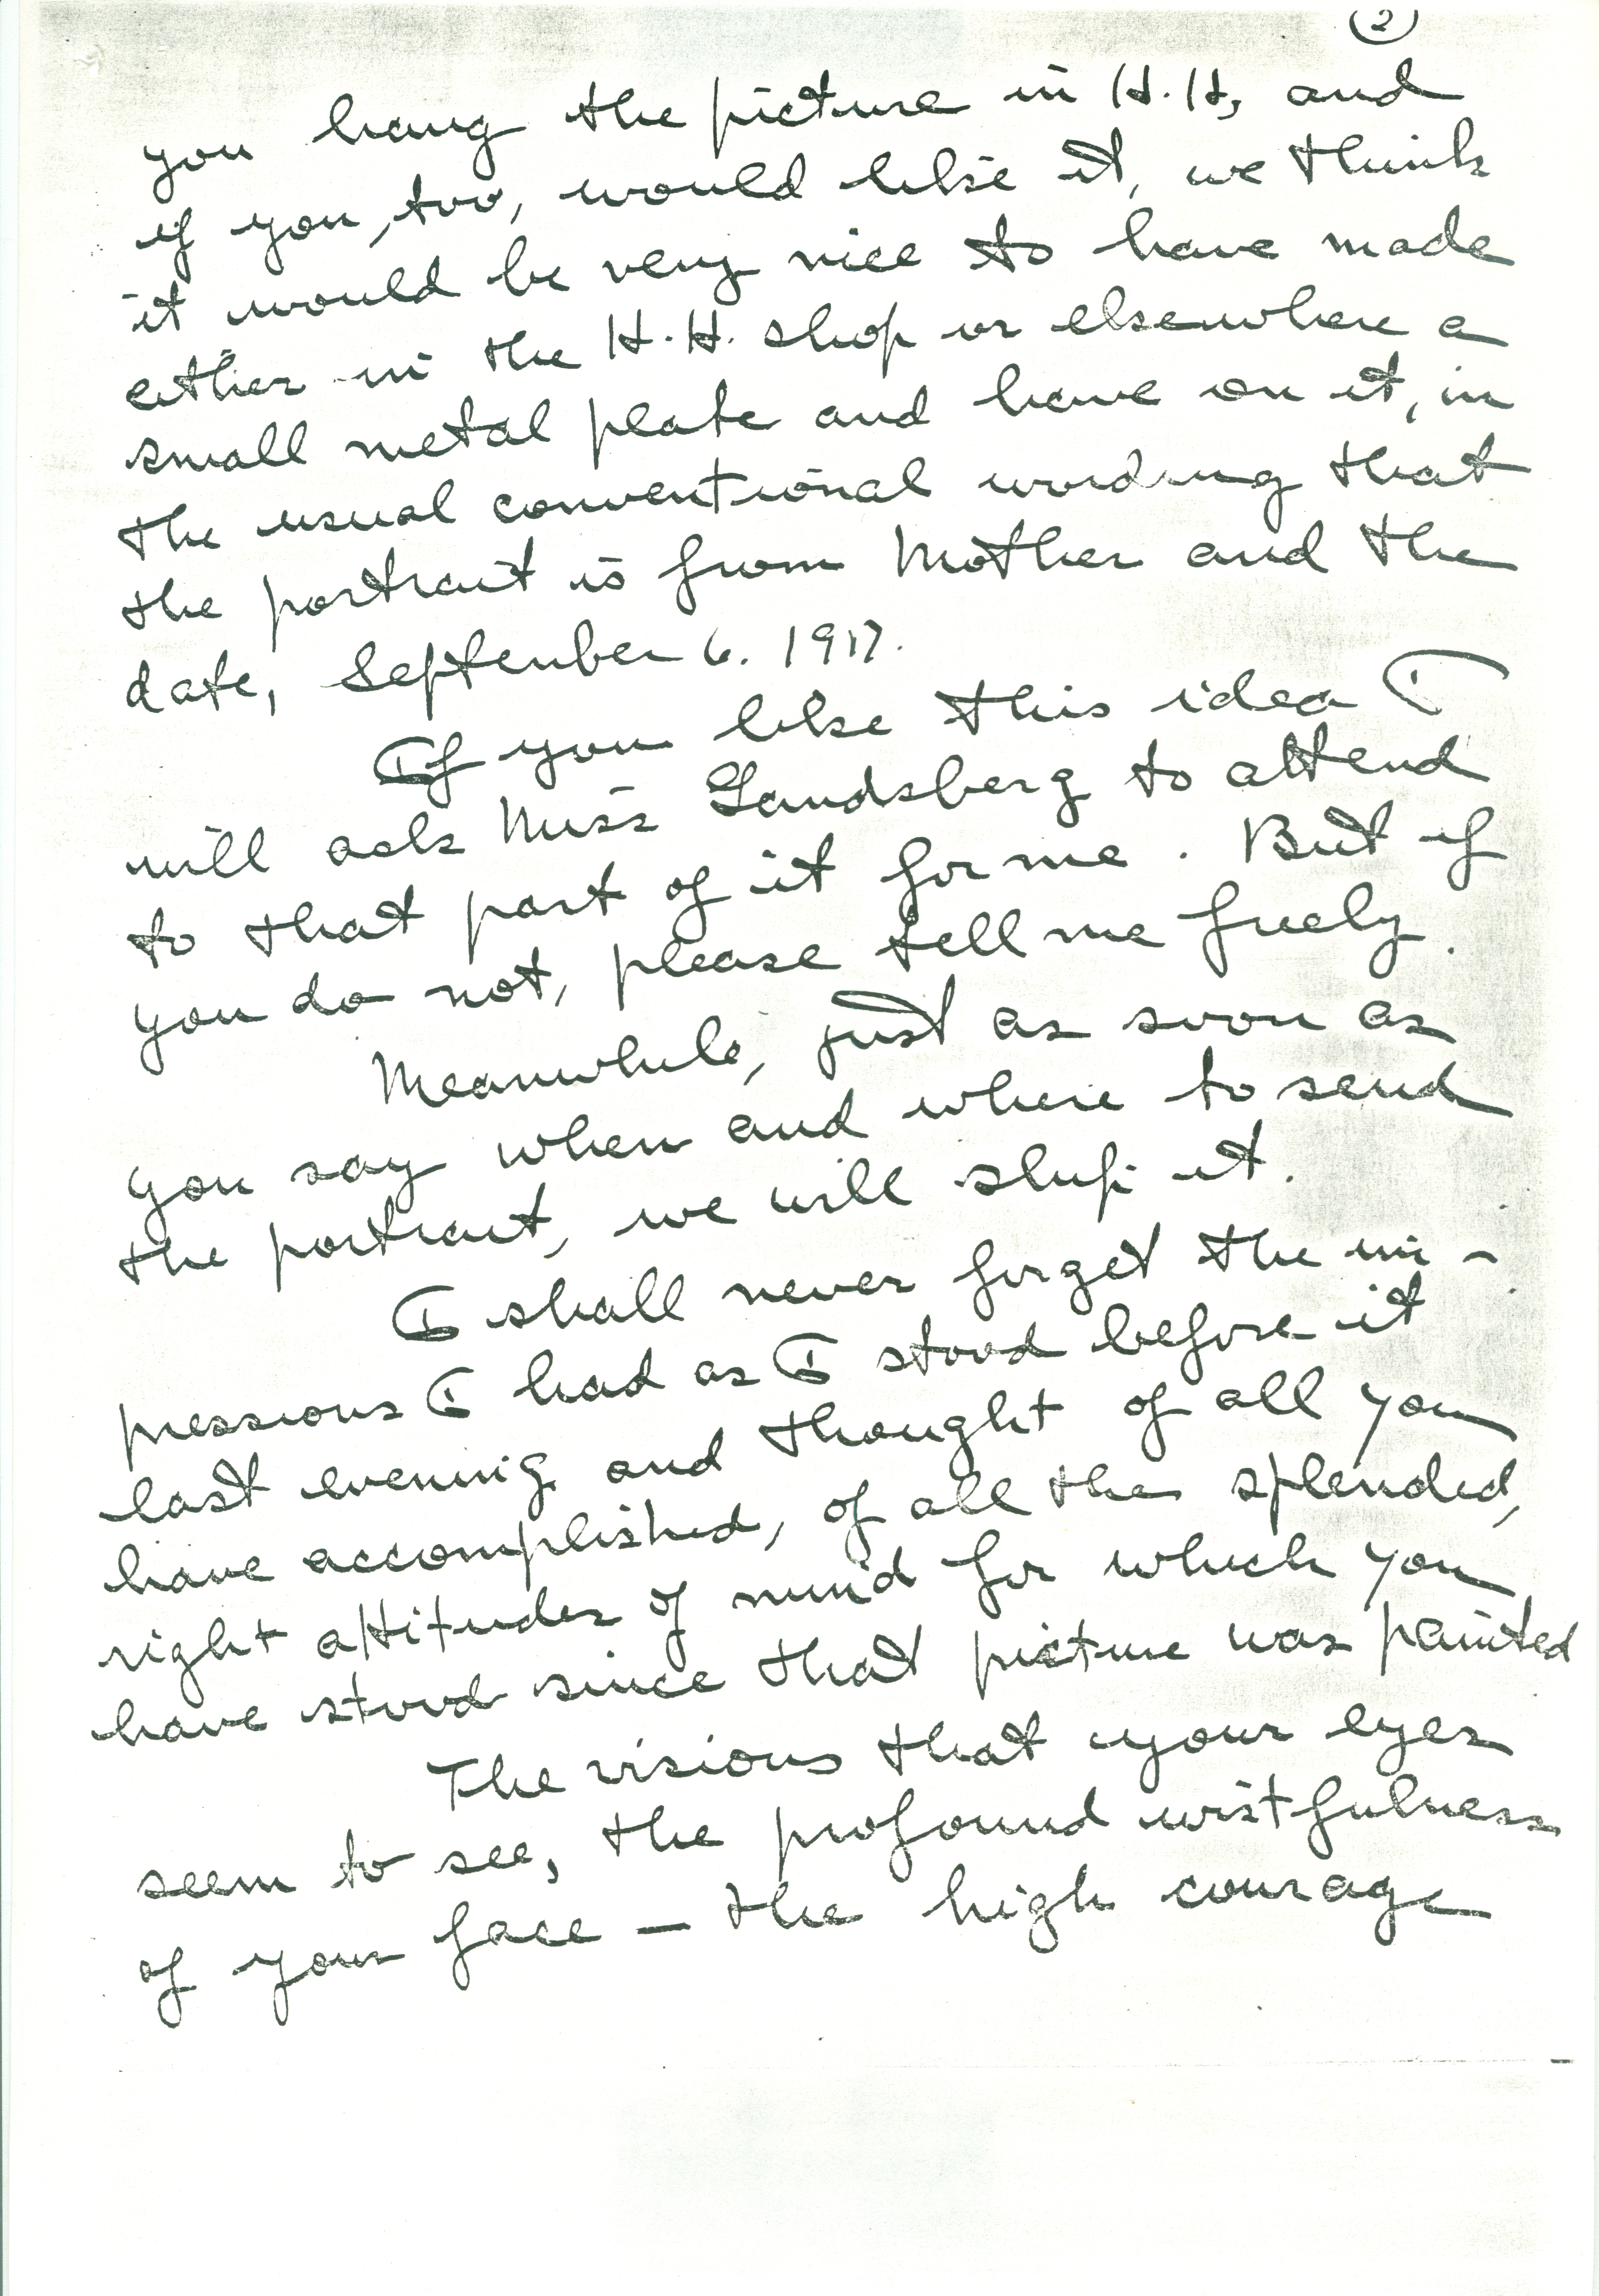 2
you hang the picture in H.H, and
if you, too, would like it, we think
it would be very nice to have made
either in the H.H. shop or elsewhere a
small metal plate and have on it, in
the usual conventional wording that
the portrait is from Mother and the
date, September 6. 1917.
If you like this idea I
will ask Miss Landsberg to attend
to that part of it for me. But if
you do not, please tell me freely.
Meanwhile, just as soon as
you say when and where to send
the portrait, we will ship it.
I shall never forget the im-
pressions I had as I stood before it
last evening and thought of all you
have accomplished, of all the splendid,
right attitudes of mind for which you
have stood since that picture was painted
The visions that your eyes
seem to see, the profound wistfulness
of your face – the high courage